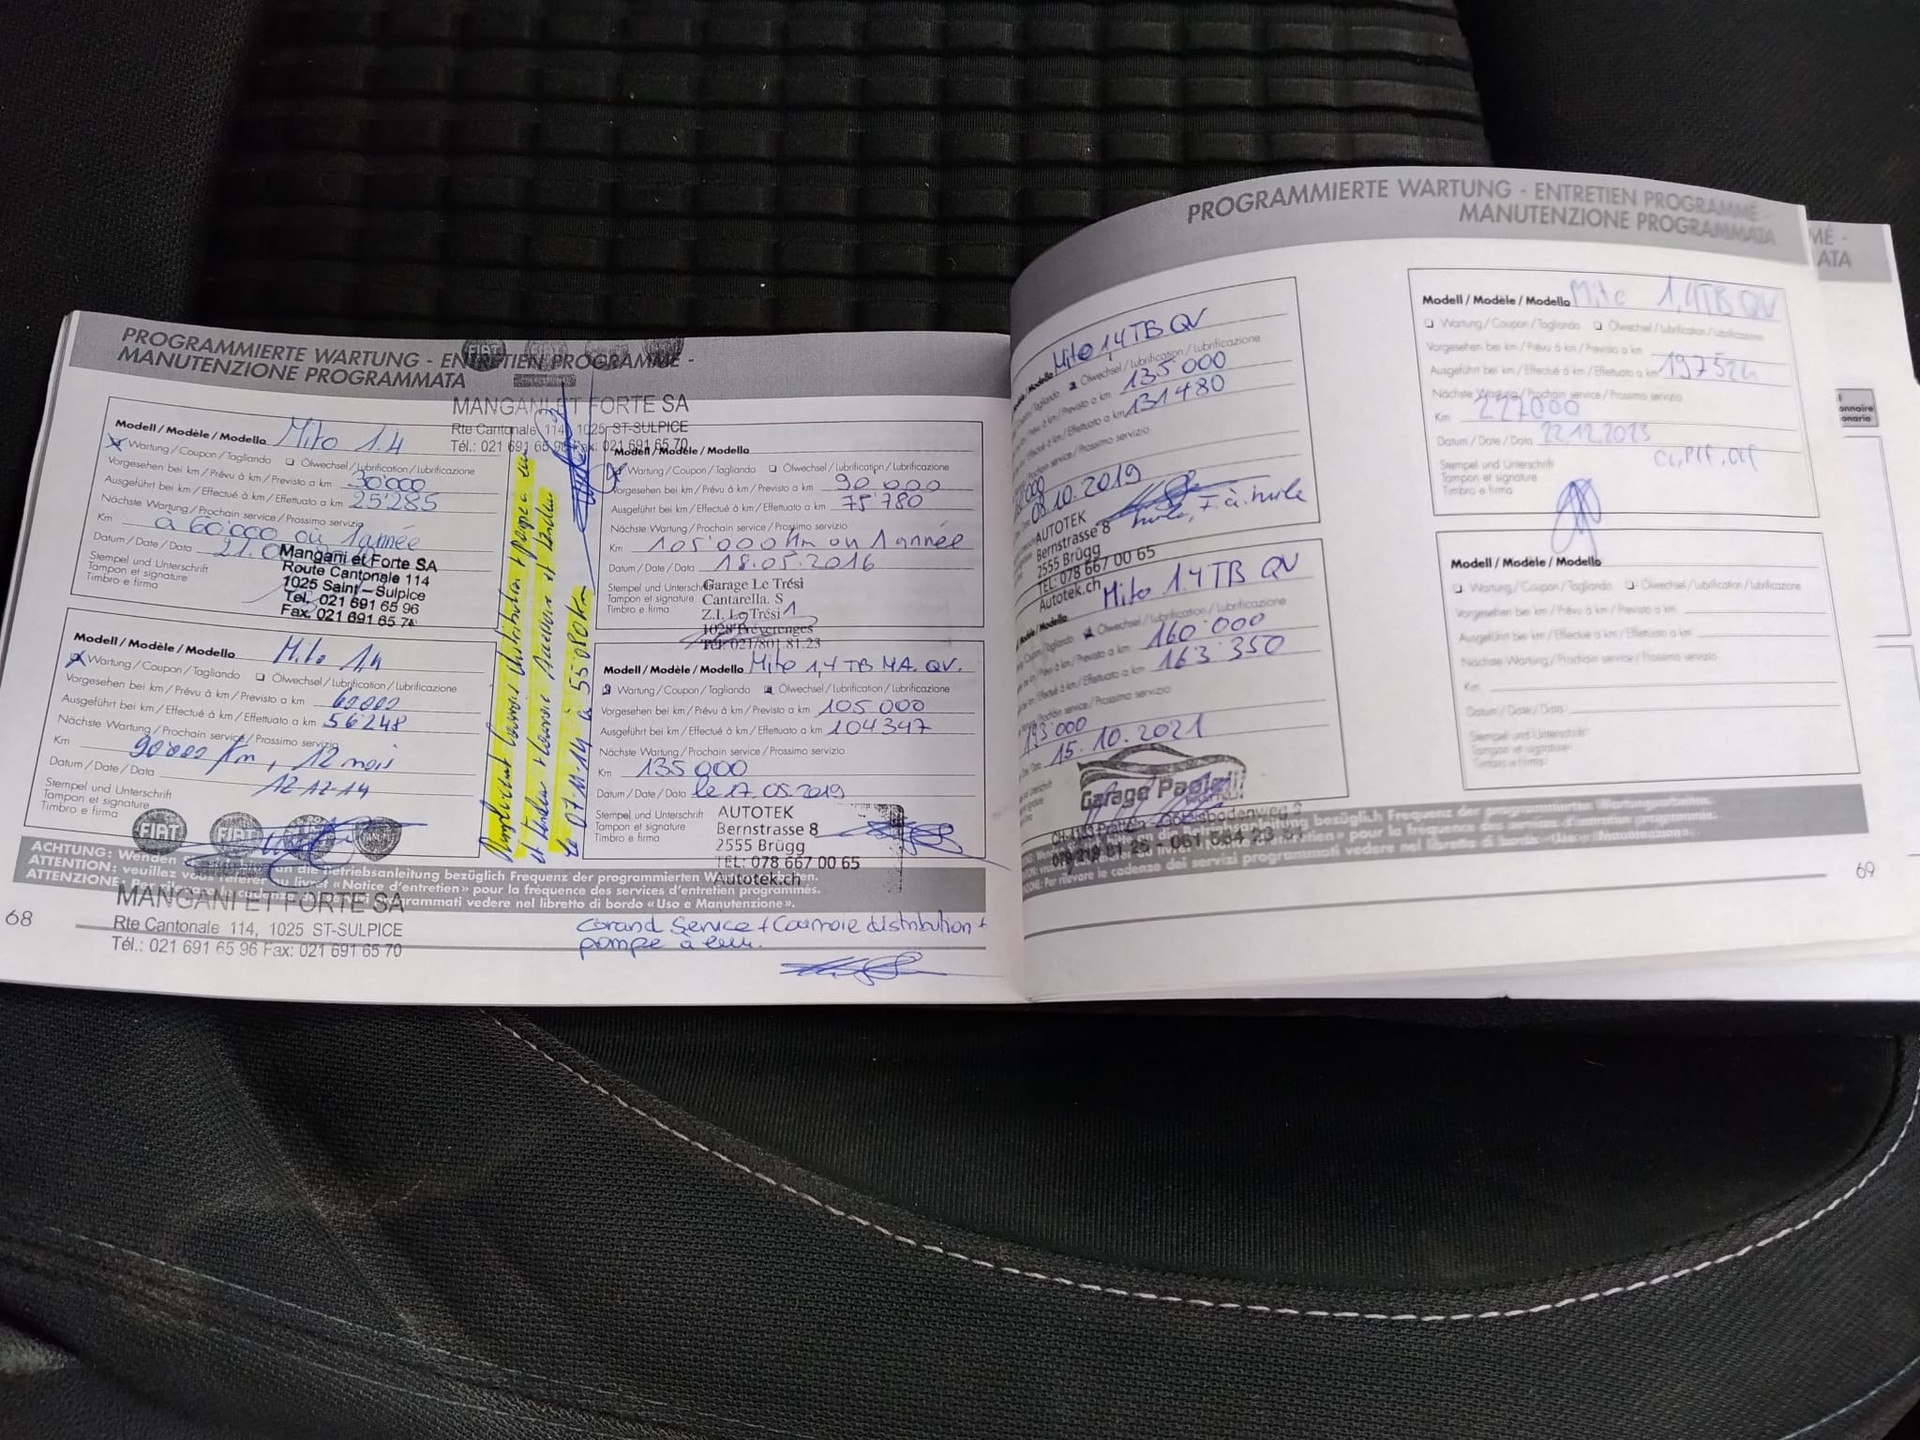 PROGRAMMIERTE WARTUNG - ENTRETIEN PROGRAMMÉ -
MANUTENZIONE PROGRAMMATA
Modell / Modèle / Modello Mito 1.4
Wartung / Coupon / Tagliando Ölwechsel / Lubrification / Lubrificazione
Vorgesehen bei km / Prévu à km / Previsto a km 30'000
Ausgeführt bei km / Effectué à km / Effettuato a km 25'285
Nächste Wartung / Prochain service / Prossimo servizio
Km à 60'000 ou 1 année
Datum / Date / Data 21.0
Stempel und Unterschrift
Tampon et signature
Timbro e firma
Mangani et Forte SA
Route Cantonale 114
1025 Saint-Sulpice
Tel. 021 691 65 96
Fax. 021 691 65 74
Modell / Modèle / Modello Mito 1.4
Wartung / Coupon / Tagliando Ölwechsel / Lubrification / Lubrificazione
Vorgesehen bei km / Prévu à km / Previsto a km 60000
Ausgeführt bei km / Effectué à km / Effettuato a km 56248
Nächste Wartung / Prochain service / Prossimo servizio
Km 90'000 Km, 12 mois
Datum / Date / Data 12-12-14
Stempel und Unterschrift
Tampon et signature
Timbro e firma
FIAT FIAT
MANGANI ET FORTE SA
Rte Cantonale 114, 1025 ST-SULPICE
Tél.: 021 691 65 96 Fax: 021 691 65 70
FIAT
MANGANI ET FORTE SA
Rte Cantonale 114, 1025 ST-SULPICE
Tél.: 021 691 65 96 Fax: 021 691 65 70
courroie distribution pompe à eau
et
le 07-11-14 à 55080Km
Modell / Modèle / Modello
Wartung / Coupon / Tagliando Ölwechsel / Lubrification / Lubrificazione
Vorgesehen bei km / Prévu à km / Previsto a km 90 000
Ausgeführt bei km / Effectué à km / Effettuato a km 75'780
Nächste Wartung / Prochain service / Prossimo servizio
Km 105'000 Km ou 1 année
Datum / Date / Data 18.05.2016
Stempel und Unterschrift
Tampon et signature
Timbro e firma
Garage Le Trési
Cantarella. S
Z.I. Le Trési 1
1028 Préverenges
Tél. 021/801.81.23
Modell / Modèle / Modello Mito 1,4 TB MA. QV.
Wartung / Coupon / Tagliando Ölwechsel / Lubrification / Lubrificazione
Vorgesehen bei km / Prévu à km / Previsto a km 105 000
Ausgeführt bei km / Effectué à km / Effettuato a km 104347
Nächste Wartung / Prochain service / Prossimo servizio
Km 135 000
Datum / Date / Data le 17.05.2019
Stempel und Unterschrift
Tampon et signature
Timbro e firma
AUTOTEK
Bernstrasse 8
2555 Brügg
TEL: 078 667 00 65
Autotek.ch
ACHTUNG: Wenden an die Betriebsanleitung bezüglich Frequenz der programmierten
ATTENTION: veuillez vous référer au livret «Notice d'entretien» pour la fréquence des services d'entretien programmés.
ATTENZIONE: programmati vedere nel libretto di bordo «Uso e Manutenzione».
68
Grand Service + Courroie distribution +
pompe à eau.
PROGRAMMIERTE WARTUNG - ENTRETIEN PROGRAMMÉ -
MANUTENZIONE PROGRAMMATA
Modello Mito 1,4 TB QV
Ölwechsel / Lubrification / Lubrificazione
Previsto a km 135 000
Effettuato a km 131480
Prochain service / Prossimo servizio
08.10.2019
huile, F. à huile
AUTOTEK
Bernstrasse 8
2555 Brügg
TEL: 078 667 00 65
Autotek.ch
Modello Mito 1.4 TB QV
Ölwechsel / Lubrification / Lubrificazione
Previsto a km 160 000
Effettuato a km 163 350
Prochain service / Prossimo servizio
193 000
15.10.2021
Garage
079 219 01 25 - 061
Modell / Modèle / Modello Mito 1,4TB QV
Wartung / Coupon / Tagliando Ölwechsel / Lubrification / Lubrificazione
Vorgesehen bei km / Prévu à km / Previsto a km
Ausgeführt bei km / Effectué à km / Effettuato a km 197 522
Nächste Wartung / Prochain service / Prossimo servizio
Km 227000
Datum / Date / Data 22.12.2023
Stempel und Unterschrift
Tampon et signature
Timbro e firma
Modell / Modèle / Modello
Wartung / Coupon / Tagliando Ölwechsel / Lubrification / Lubrificazione
Vorgesehen bei km / Prévu à km / Previsto a km
Ausgeführt bei km / Effectué à km / Effettuato a km
Nächste Wartung / Prochain service / Prossimo servizio
Km
Datum / Date / Data
Stempel und Unterschrift
Tampon et signature
Timbro e firma
bezüglich Frequenz der programmierten Wartungsarbeiten.
pour la fréquence des services d'entretien programmés.
ZIONE: Per rilevare le cadenze dei servizi programmati vedere nel libretto di bordo «Uso e Manutenzione».
69
MÉ -
ATA
onnaire
onario